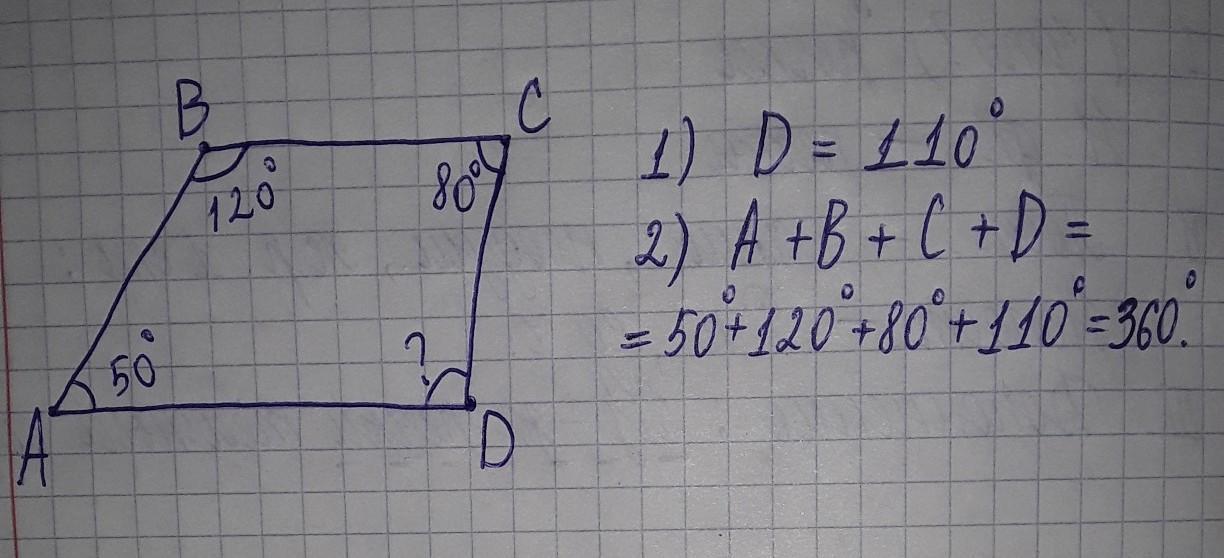 B
C
120°
80°
50°
?
A
D
1) D = 110°
2) A + B + C + D =
= 50° + 120° + 80° + 110° = 360°.